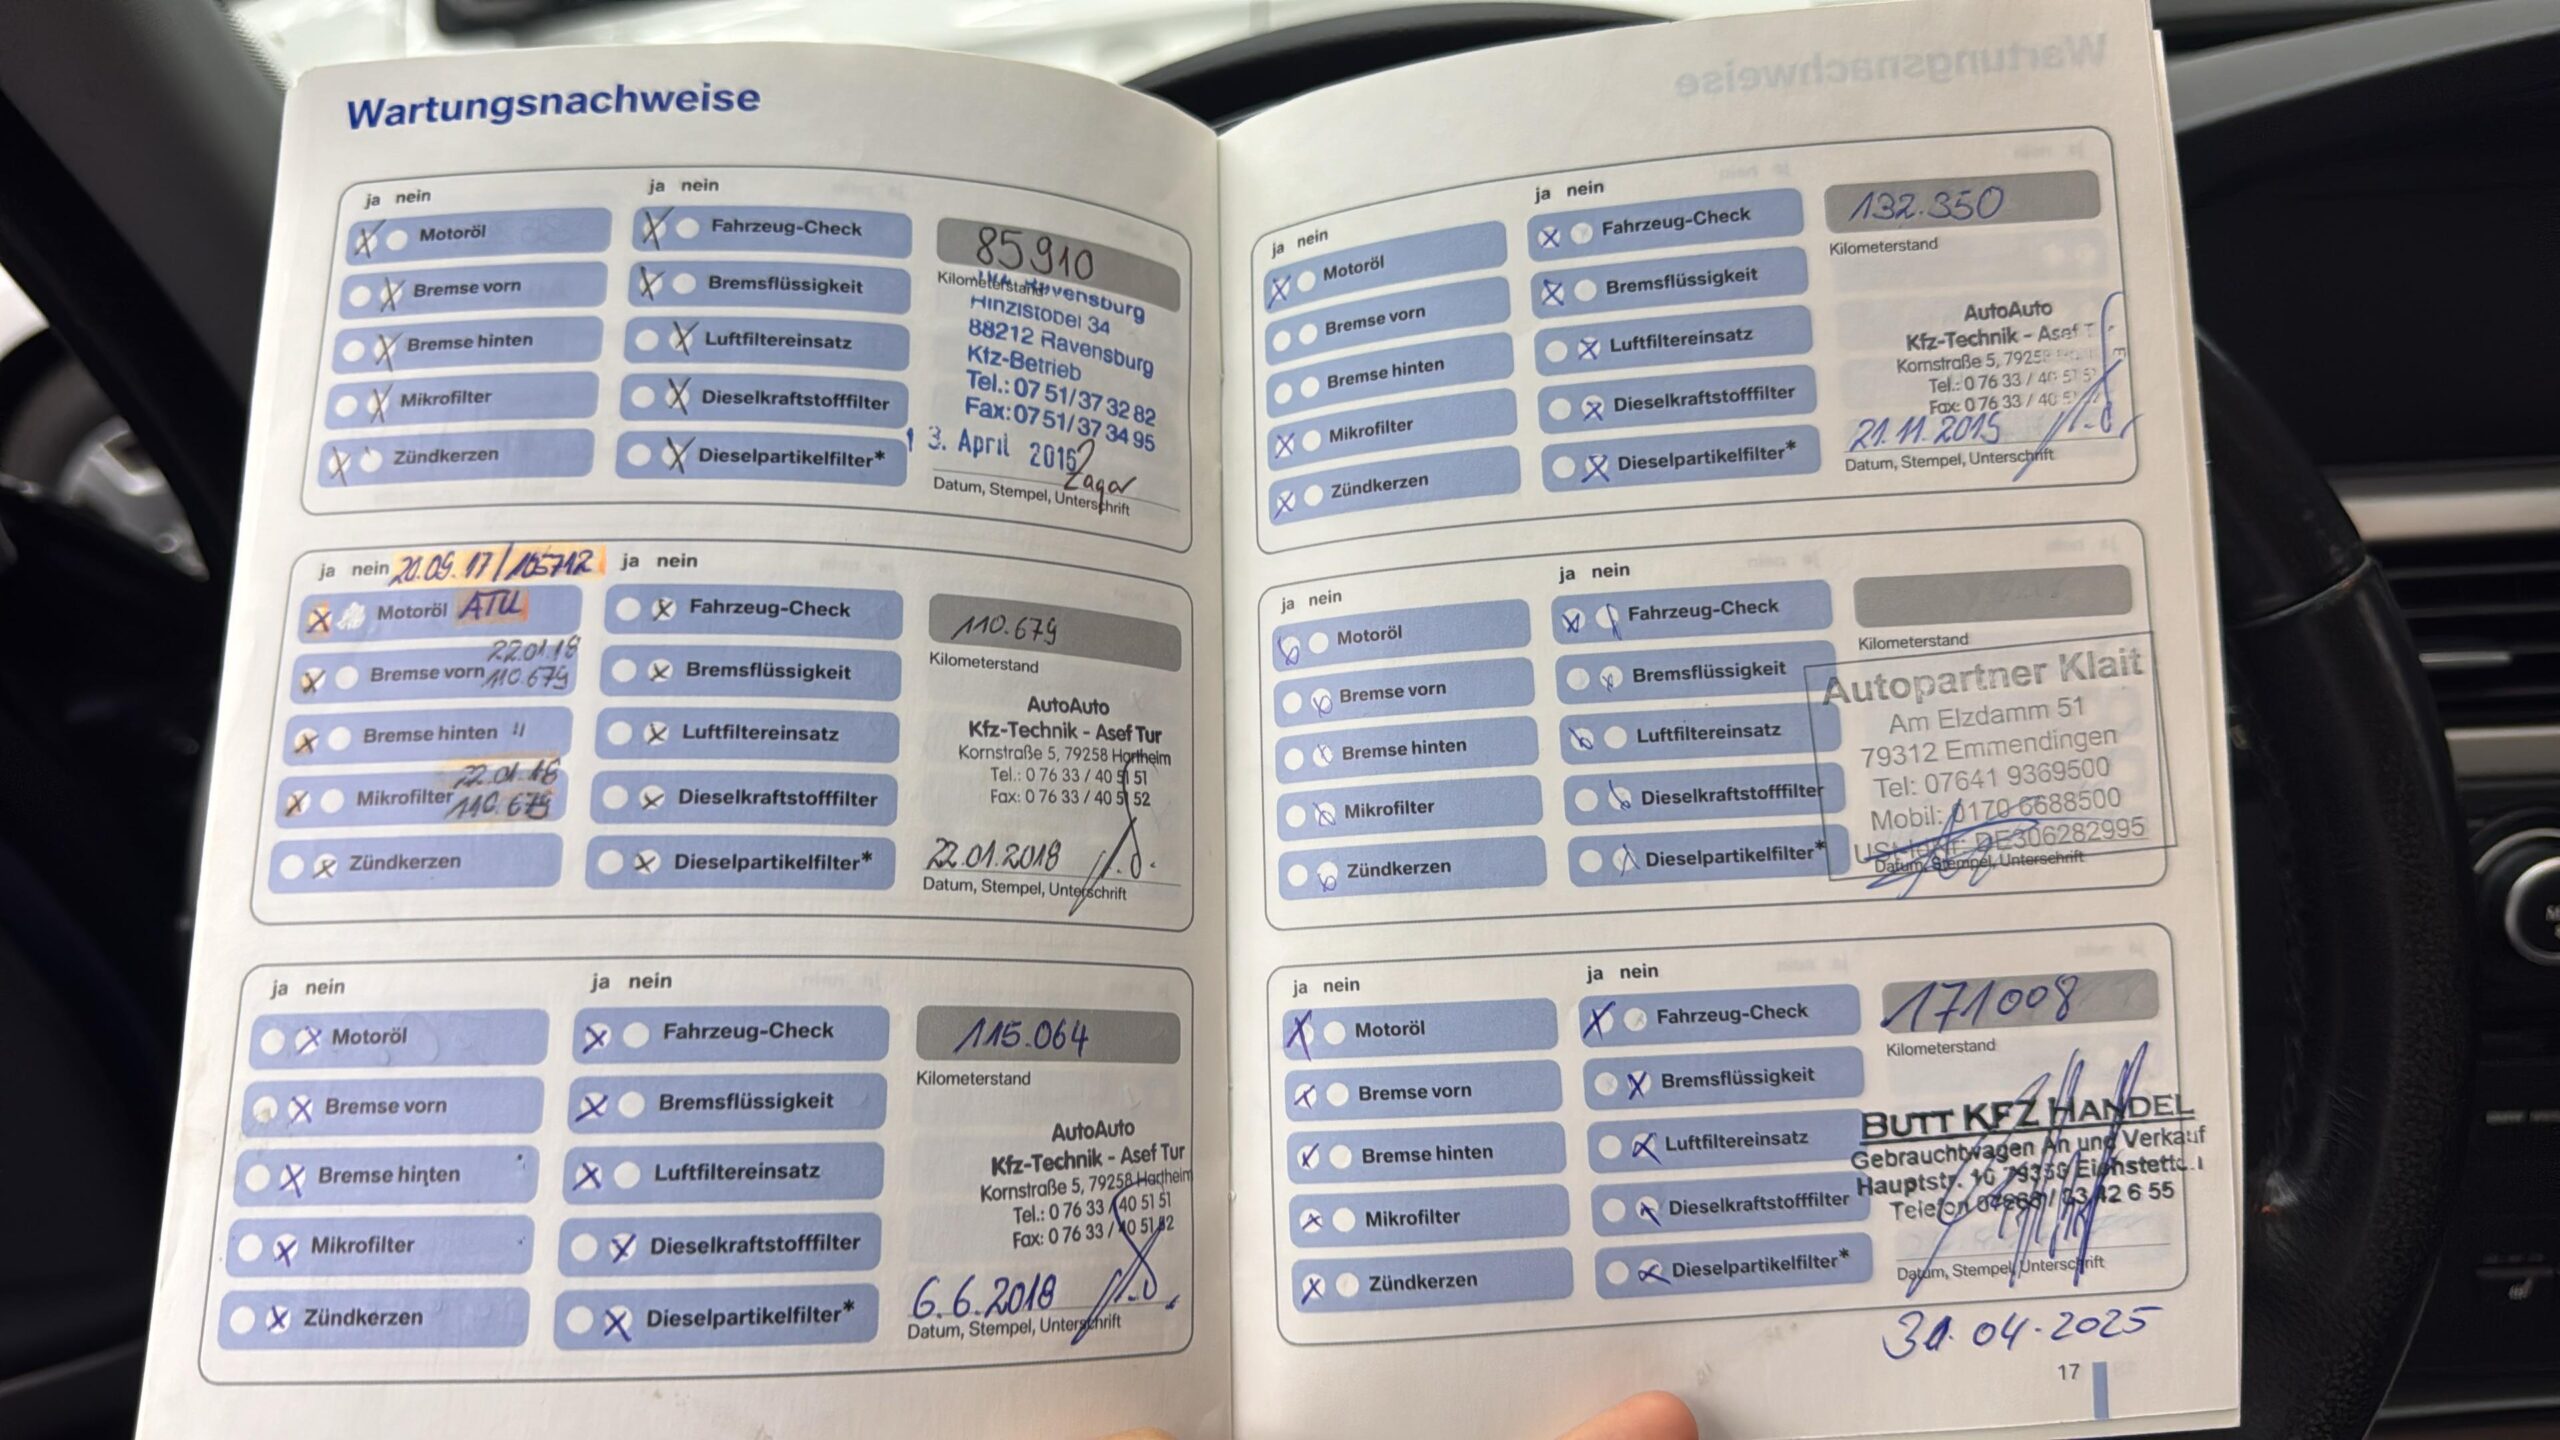 Wartungsnachweise
ja nein
Motoröl
Bremse vorn
Bremse hinten
Mikrofilter
Zündkerzen
ja nein
Fahrzeug-Check
Bremsflüssigkeit
Luftfiltereinsatz
Dieselkraftstofffilter
Dieselpartikelfilter*
85910
Kilometerstand
Ravensburg
Hinzistobel 34
88212 Ravensburg
Kfz-Betrieb
Tel.: 07 51/37 32 82
Fax: 07 51/37 34 95
1 3. April 2016
Zagar
Datum, Stempel, Unterschrift
ja nein 20.09.17/105712
Motoröl ATU
Bremse vorn 22.01.18
110.679
Bremse hinten "
22.01.18
Mikrofilter 110.679
Zündkerzen
ja nein
Fahrzeug-Check
Bremsflüssigkeit
Luftfiltereinsatz
Dieselkraftstofffilter
Dieselpartikelfilter*
110.679
Kilometerstand
AutoAuto
Kfz-Technik - Asef Tur
Kornstraße 5, 79258 Hartheim
Tel.: 0 76 33 / 40 51 51
Fax: 0 76 33 / 40 51 52
22.01.2018
Datum, Stempel, Unterschrift
ja nein
Motoröl
Bremse vorn
Bremse hinten
Mikrofilter
Zündkerzen
ja nein
Fahrzeug-Check
Bremsflüssigkeit
Luftfiltereinsatz
Dieselkraftstofffilter
Dieselpartikelfilter*
115.064
Kilometerstand
AutoAuto
Kfz-Technik - Asef Tur
Kornstraße 5, 79258 Hartheim
Tel.: 0 76 33 / 40 51 51
Fax: 0 76 33 / 40 51 52
6.6.2018
Datum, Stempel, Unterschrift
ja nein
Motoröl
Bremse vorn
Bremse hinten
Mikrofilter
Zündkerzen
ja nein
Fahrzeug-Check
Bremsflüssigkeit
Luftfiltereinsatz
Dieselkraftstofffilter
Dieselpartikelfilter*
132.350
Kilometerstand
AutoAuto
Kfz-Technik - Asef
Kornstraße 5, 79258
Tel.: 0 76 33 / 40 51
Fax: 0 76 33 / 40
21.11.2015
Datum, Stempel, Unterschrift
ja nein
Motoröl
Bremse vorn
Bremse hinten
Mikrofilter
Zündkerzen
ja nein
Fahrzeug-Check
Bremsflüssigkeit
Luftfiltereinsatz
Dieselkraftstofffilter
Dieselpartikelfilter*
Kilometerstand
Autopartner Klait
Am Elzdamm 51
79312 Emmendingen
Tel: 07641 9369500
Mobil: 0170 6688500
DE306282995
Datum, Stempel, Unterschrift
ja nein
Motoröl
Bremse vorn
Bremse hinten
Mikrofilter
Zündkerzen
ja nein
Fahrzeug-Check
Bremsflüssigkeit
Luftfiltereinsatz
Dieselkraftstofffilter
Dieselpartikelfilter*
171008
Kilometerstand
BUTT KFZ HANDEL
Gebrauchtwagen An und Verkauf
Hauptstr. Eichstetten
Telefon 42 6 55
Datum, Stempel, Unterschrift
04.2025
17